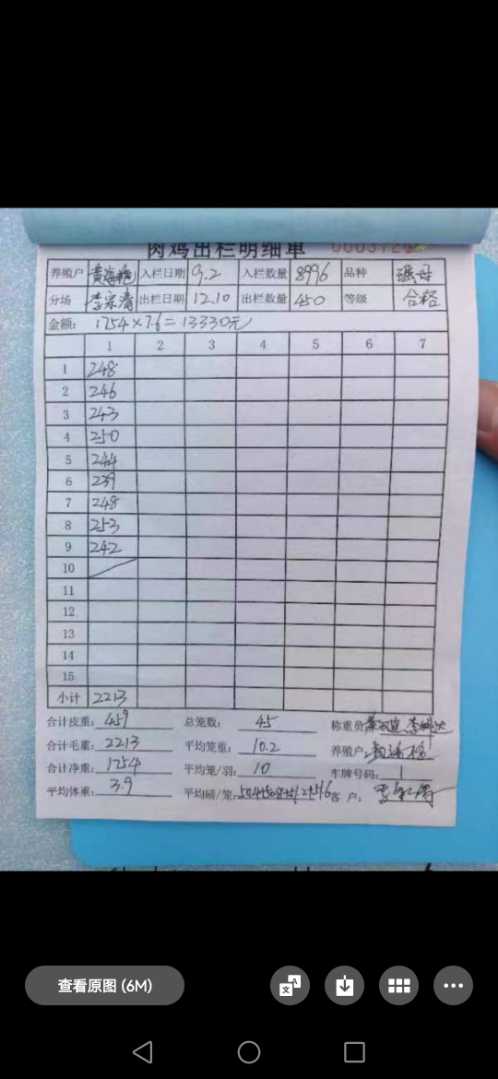 肉鸡出栏明细单
养殖户 入栏日期 9.2 入栏数量 8996 品种
分场 出栏日期 12.10 出栏数量 450 等级 合格
金额: 1754×7.6=13330元
1 2 3 4 5 6 7
1 248
2 246
3 243
4 250
5 244
6 239
7 248
8 253
9 242
10
11
12
13
14
15
小计 2213
合计皮重: 459 总笼数: 45 称重员
合计毛重: 2213 平均笼重: 10.2 养殖户:
合计净重: 1754 平均笼/羽: 10 车牌号码:
平均体重: 3.9 平均磅/笼: 客户:
查看原图 (6M)